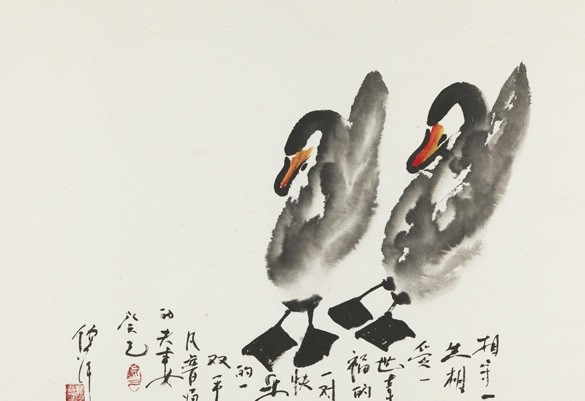 相守一
生相
爱一
世幸
福的
一对
快
乐
的一
双平
凡普
的夫妻
癸巳